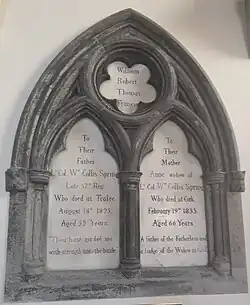 William
Robert
Thomas
Francis
To
Their
Father
Lt Col. Wm Collis Spring
Late 57th Reg.
Who died at Tralee,
August 18th 1825.
Aged 55 Years.
Thou have girded me
with strength unto the battle.
To
Their
Mother
Anne widow of
Lt Col. Wm Collis Spring
Who died at Cork,
February 19th 1855.
Aged 66 Years.
A father of the Fatherless and
a Judge of the Widow is God.